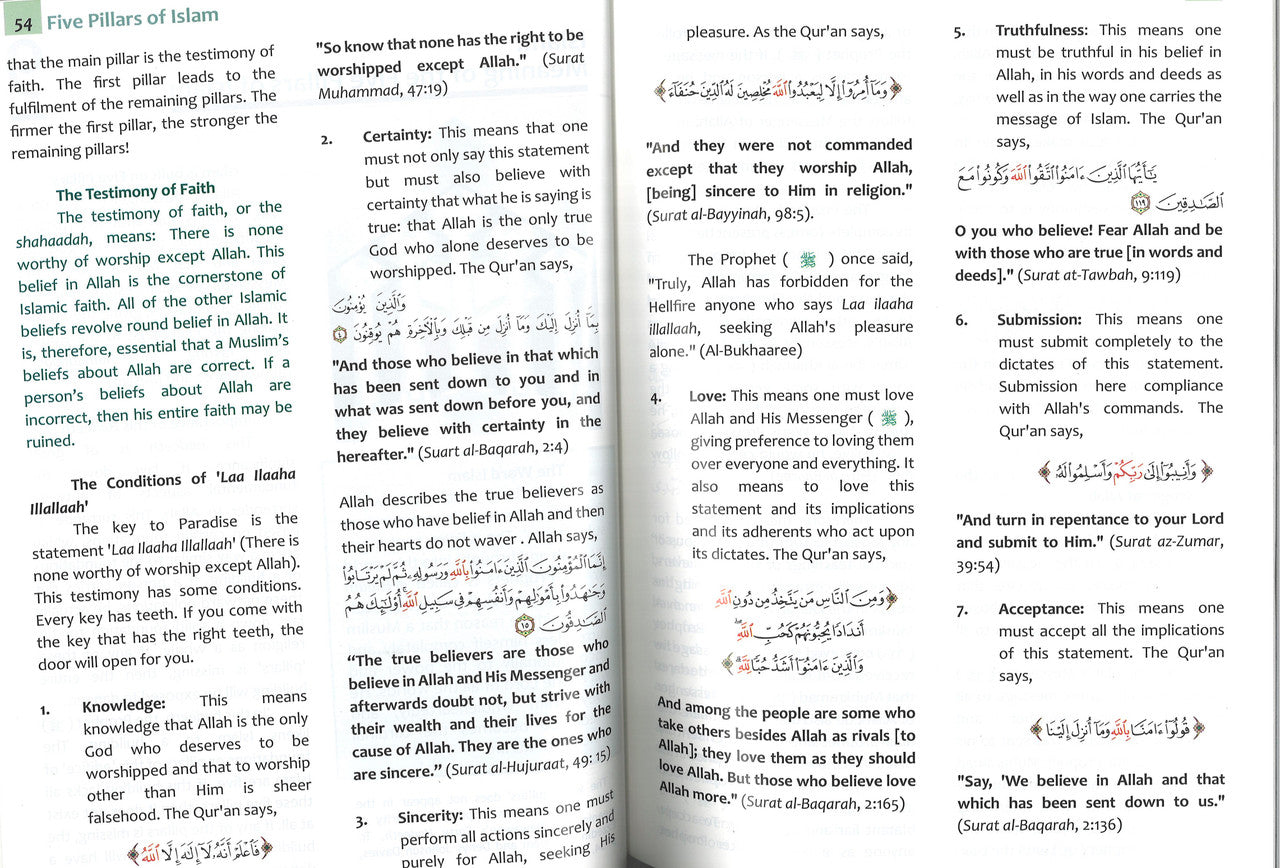 54 Five Pillars of Islam
that the main pillar is the testimony of
faith. The first pillar leads to the
fulfilment of the remaining pillars. The
firmer the first pillar, the stronger the
remaining pillars!
The Testimony of Faith
The testimony of faith, or the
shahaadah, means: There is none
worthy of worship except Allah. This
belief in Allah is the cornerstone of
Islamic faith. All of the other Islamic
beliefs revolve round belief in Allah. It
is, therefore, essential that a Muslim's
beliefs about Allah are correct. If a
person's beliefs about Allah are
incorrect, then his entire faith may be
ruined.
The Conditions of 'Laa Ilaaha
Illallaah'
The key to Paradise is the
statement 'Laa Ilaaha Illallaah' (There is
none worthy of worship except Allah).
This testimony has some conditions.
Every key has teeth. If you come with
the key that has the right teeth, the
door will open for you.
1. Knowledge: This means
knowledge that Allah is the only
God who deserves to be
worshipped and that to worship
other than Him is sheer
falsehood. The Qur'an says,
﴿فَٱعْلَمْ أَنَّهُۥ لَآ إِلَٰهَ إِلَّا ٱللَّهُ﴾
"So know that none has the right to be
worshipped except Allah." (Surat
Muhammad, 47:19)
2. Certainty: This means that one
must not only say this statement
but must also believe with
certainty that what he is saying is
true: that Allah is the only true
God who alone deserves to be
worshipped. The Qur'an says,
وَٱلَّذِينَ يُؤْمِنُونَ
بِمَآ أُنزِلَ إِلَيْكَ وَمَآ أُنزِلَ مِن قَبْلِكَ وَبِٱلْأٓخِرَةِ هُمْ يُوقِنُونَ ٤
"And those who believe in that which
has been sent down to you and in
what was sent down before you, and
they believe with certainty in the
hereafter." (Suart al-Baqarah, 2:4)
Allah describes the true believers as
those who have belief in Allah and then
their hearts do not waver . Allah says,
إِنَّمَا ٱلْمُؤْمِنُونَ ٱلَّذِينَ ءَامَنُوا۟ بِٱللَّهِ وَرَسُولِهِۦ ثُمَّ لَمْ يَرْتَابُوا۟
وَجَٰهَدُوا۟ بِأَمْوَٰلِهِمْ وَأَنفُسِهِمْ فِى سَبِيلِ ٱللَّهِ ۚ أُو۟لَٰٓئِكَ هُمُ
ٱلصَّٰدِقُونَ ١٥
“The true believers are those who
believe in Allah and His Messenger and
afterwards doubt not, but strive with
their wealth and their lives for the
cause of Allah. They are the ones who
are sincere.” (Surat al-Hujuraat, 49: 15)
3. Sincerity: This means one must
perform all actions sincerely and
purely for Allah, seeking His
pleasure. As the Qur'an says,
﴿وَمَآ أُمِرُوٓا۟ إِلَّا لِيَعْبُدُوا۟ ٱللَّهَ مُخْلِصِينَ لَهُ ٱلدِّينَ حُنَفَآءَ﴾
"And they were not commanded
except that they worship Allah,
[being] sincere to Him in religion."
(Surat al-Bayyinah, 98:5).
The Prophet ( ﷺ ) once said,
"Truly, Allah has forbidden for the
Hellfire anyone who says Laa ilaaha
illallaah, seeking Allah's pleasure
alone." (Al-Bukhaaree)
4. Love: This means one must love
Allah and His Messenger ( ﷺ ),
giving preference to loving them
over everyone and everything. It
also means to love this
statement and its implications
and its adherents who act upon
its dictates. The Qur'an says,
﴿وَمِنَ ٱلنَّاسِ مَن يَتَّخِذُ مِن دُونِ ٱللَّهِ
أَندَادًا يُحِبُّونَهُمْ كَحُبِّ ٱللَّهِ ۖ
وَٱلَّذِينَ ءَامَنُوٓا۟ أَشَدُّ حُبًّا لِّلَّهِ ۗ﴾
And among the people are some who
take others besides Allah as rivals [to
Allah]; they love them as they should
love Allah. But those who believe love
Allah more." (Surat al-Baqarah, 2:165)
5. Truthfulness: This means one
must be truthful in his belief in
Allah, in his words and deeds as
well as in the way one carries the
message of Islam. The Qur'an
says,
يَٰٓأَيُّهَا ٱلَّذِينَ ءَامَنُوا۟ ٱتَّقُوا۟ ٱللَّهَ وَكُونُوا۟ مَعَ
ٱلصَّٰدِقِينَ ١١٩
O you who believe! Fear Allah and be
with those who are true [in words and
deeds]." (Surat at-Tawbah, 9:119)
6. Submission: This means one
must submit completely to the
dictates of this statement.
Submission here compliance
with Allah's commands. The
Qur'an says,
﴿وَأَنِيبُوٓا۟ إِلَىٰ رَبِّكُمْ وَأَسْلِمُوا۟ لَهُۥ﴾
"And turn in repentance to your Lord
and submit to Him." (Surat az-Zumar,
39:54)
7. Acceptance: This means one
must accept all the implications
of this statement. The Qur'an
says,
﴿قُولُوٓا۟ ءَامَنَّا بِٱللَّهِ وَمَآ أُنزِلَ إِلَيْنَا﴾
"Say, 'We believe in Allah and that
which has been sent down to us."
(Surat al-Baqarah, 2:136)